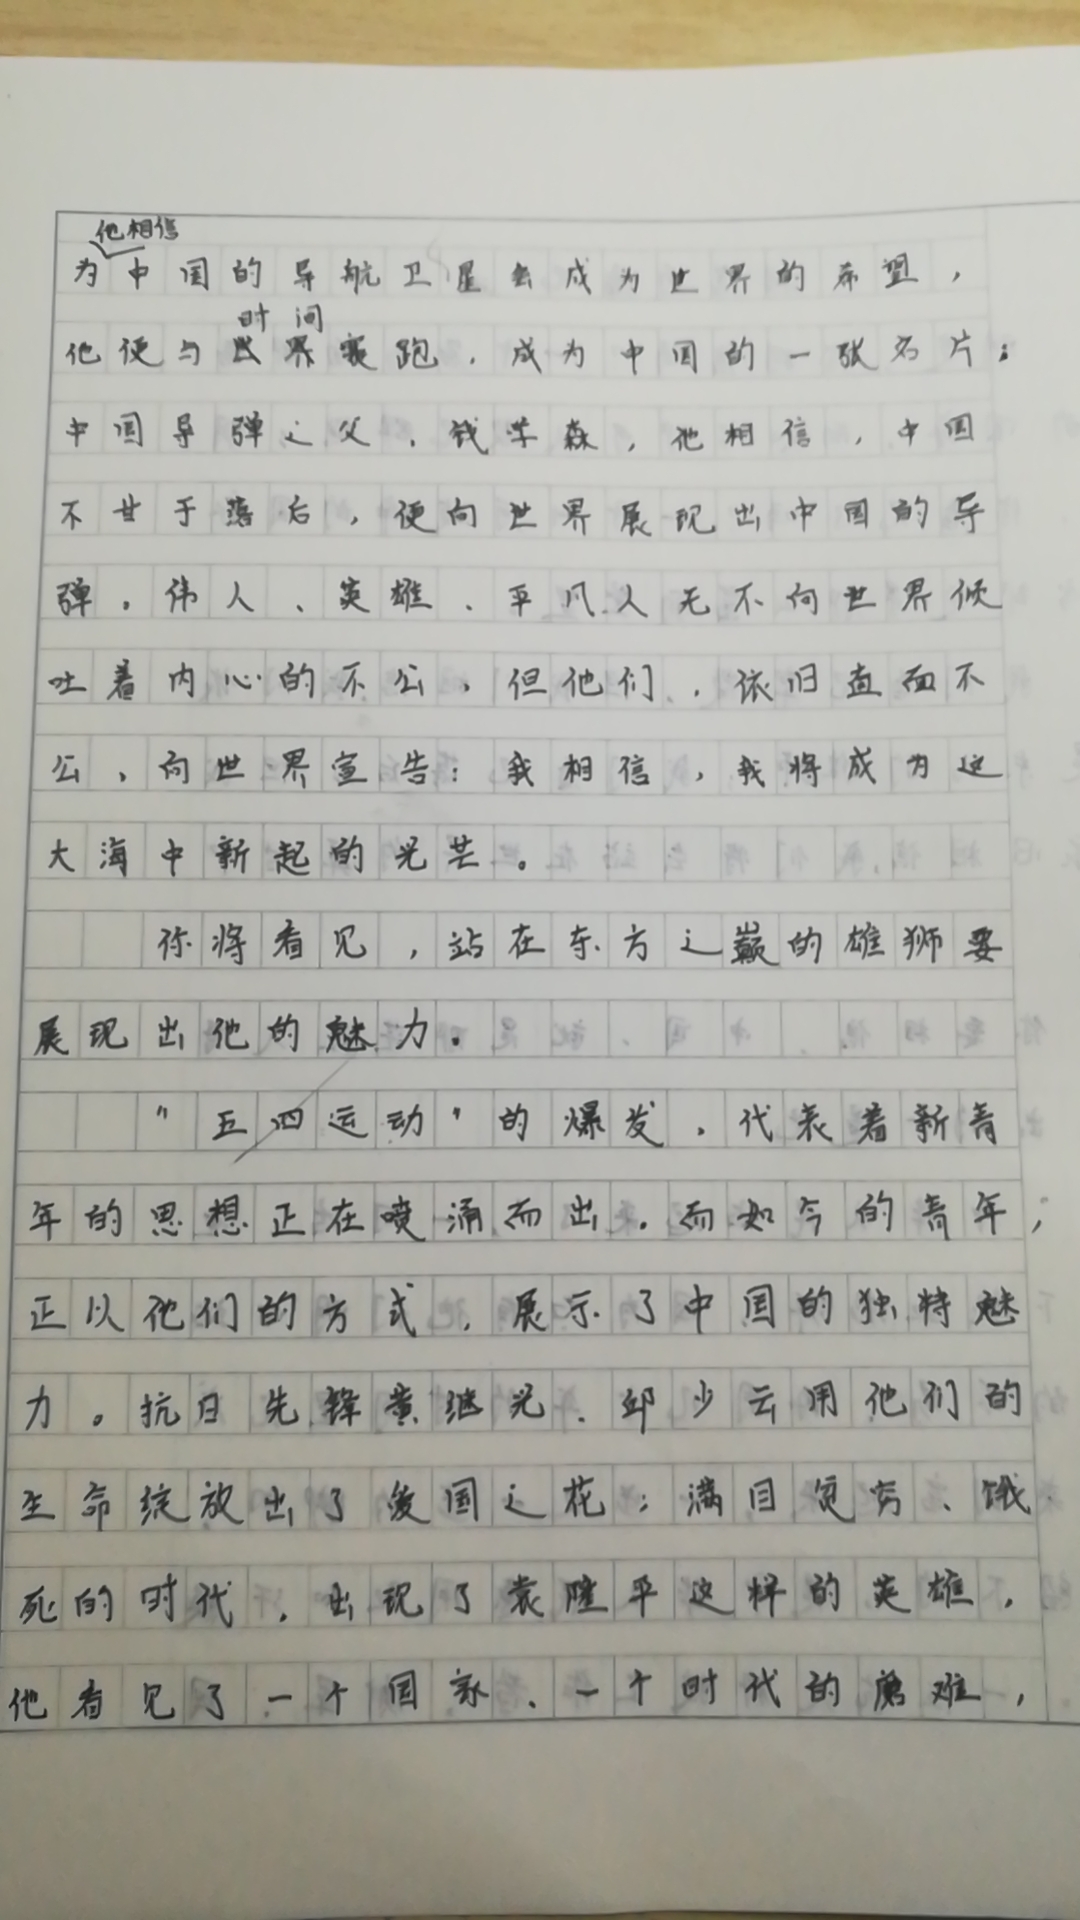 他相信
为中国的导航卫星会成为世界的希望，
时间
他便与世界赛跑，成为中国的一张名片；
中国导弹之父、钱学森，他相信，中国
不甘于落后，便向世界展现出中国的导
弹。伟人、英雄、平凡人无不向世界倾
吐着内心的不公，但他们，依旧直面不
公，向世界宣告：我相信，我将成为这
大海中新起的光芒。
你将看见，站在东方之巅的雄狮要
展现出他的魅力。
"五四运动"的爆发，代表着新青
年的思想正在喷涌而出。而如今的青年，
正以他们的方式，展示了中国的独特魅
力。抗日先锋黄继光、邱少云用他们的
生命绽放出了爱国之花；满目贫穷、饿
死的时代，出现了袁隆平这样的英雄，
他看见了一个国家、一个时代的磨难，